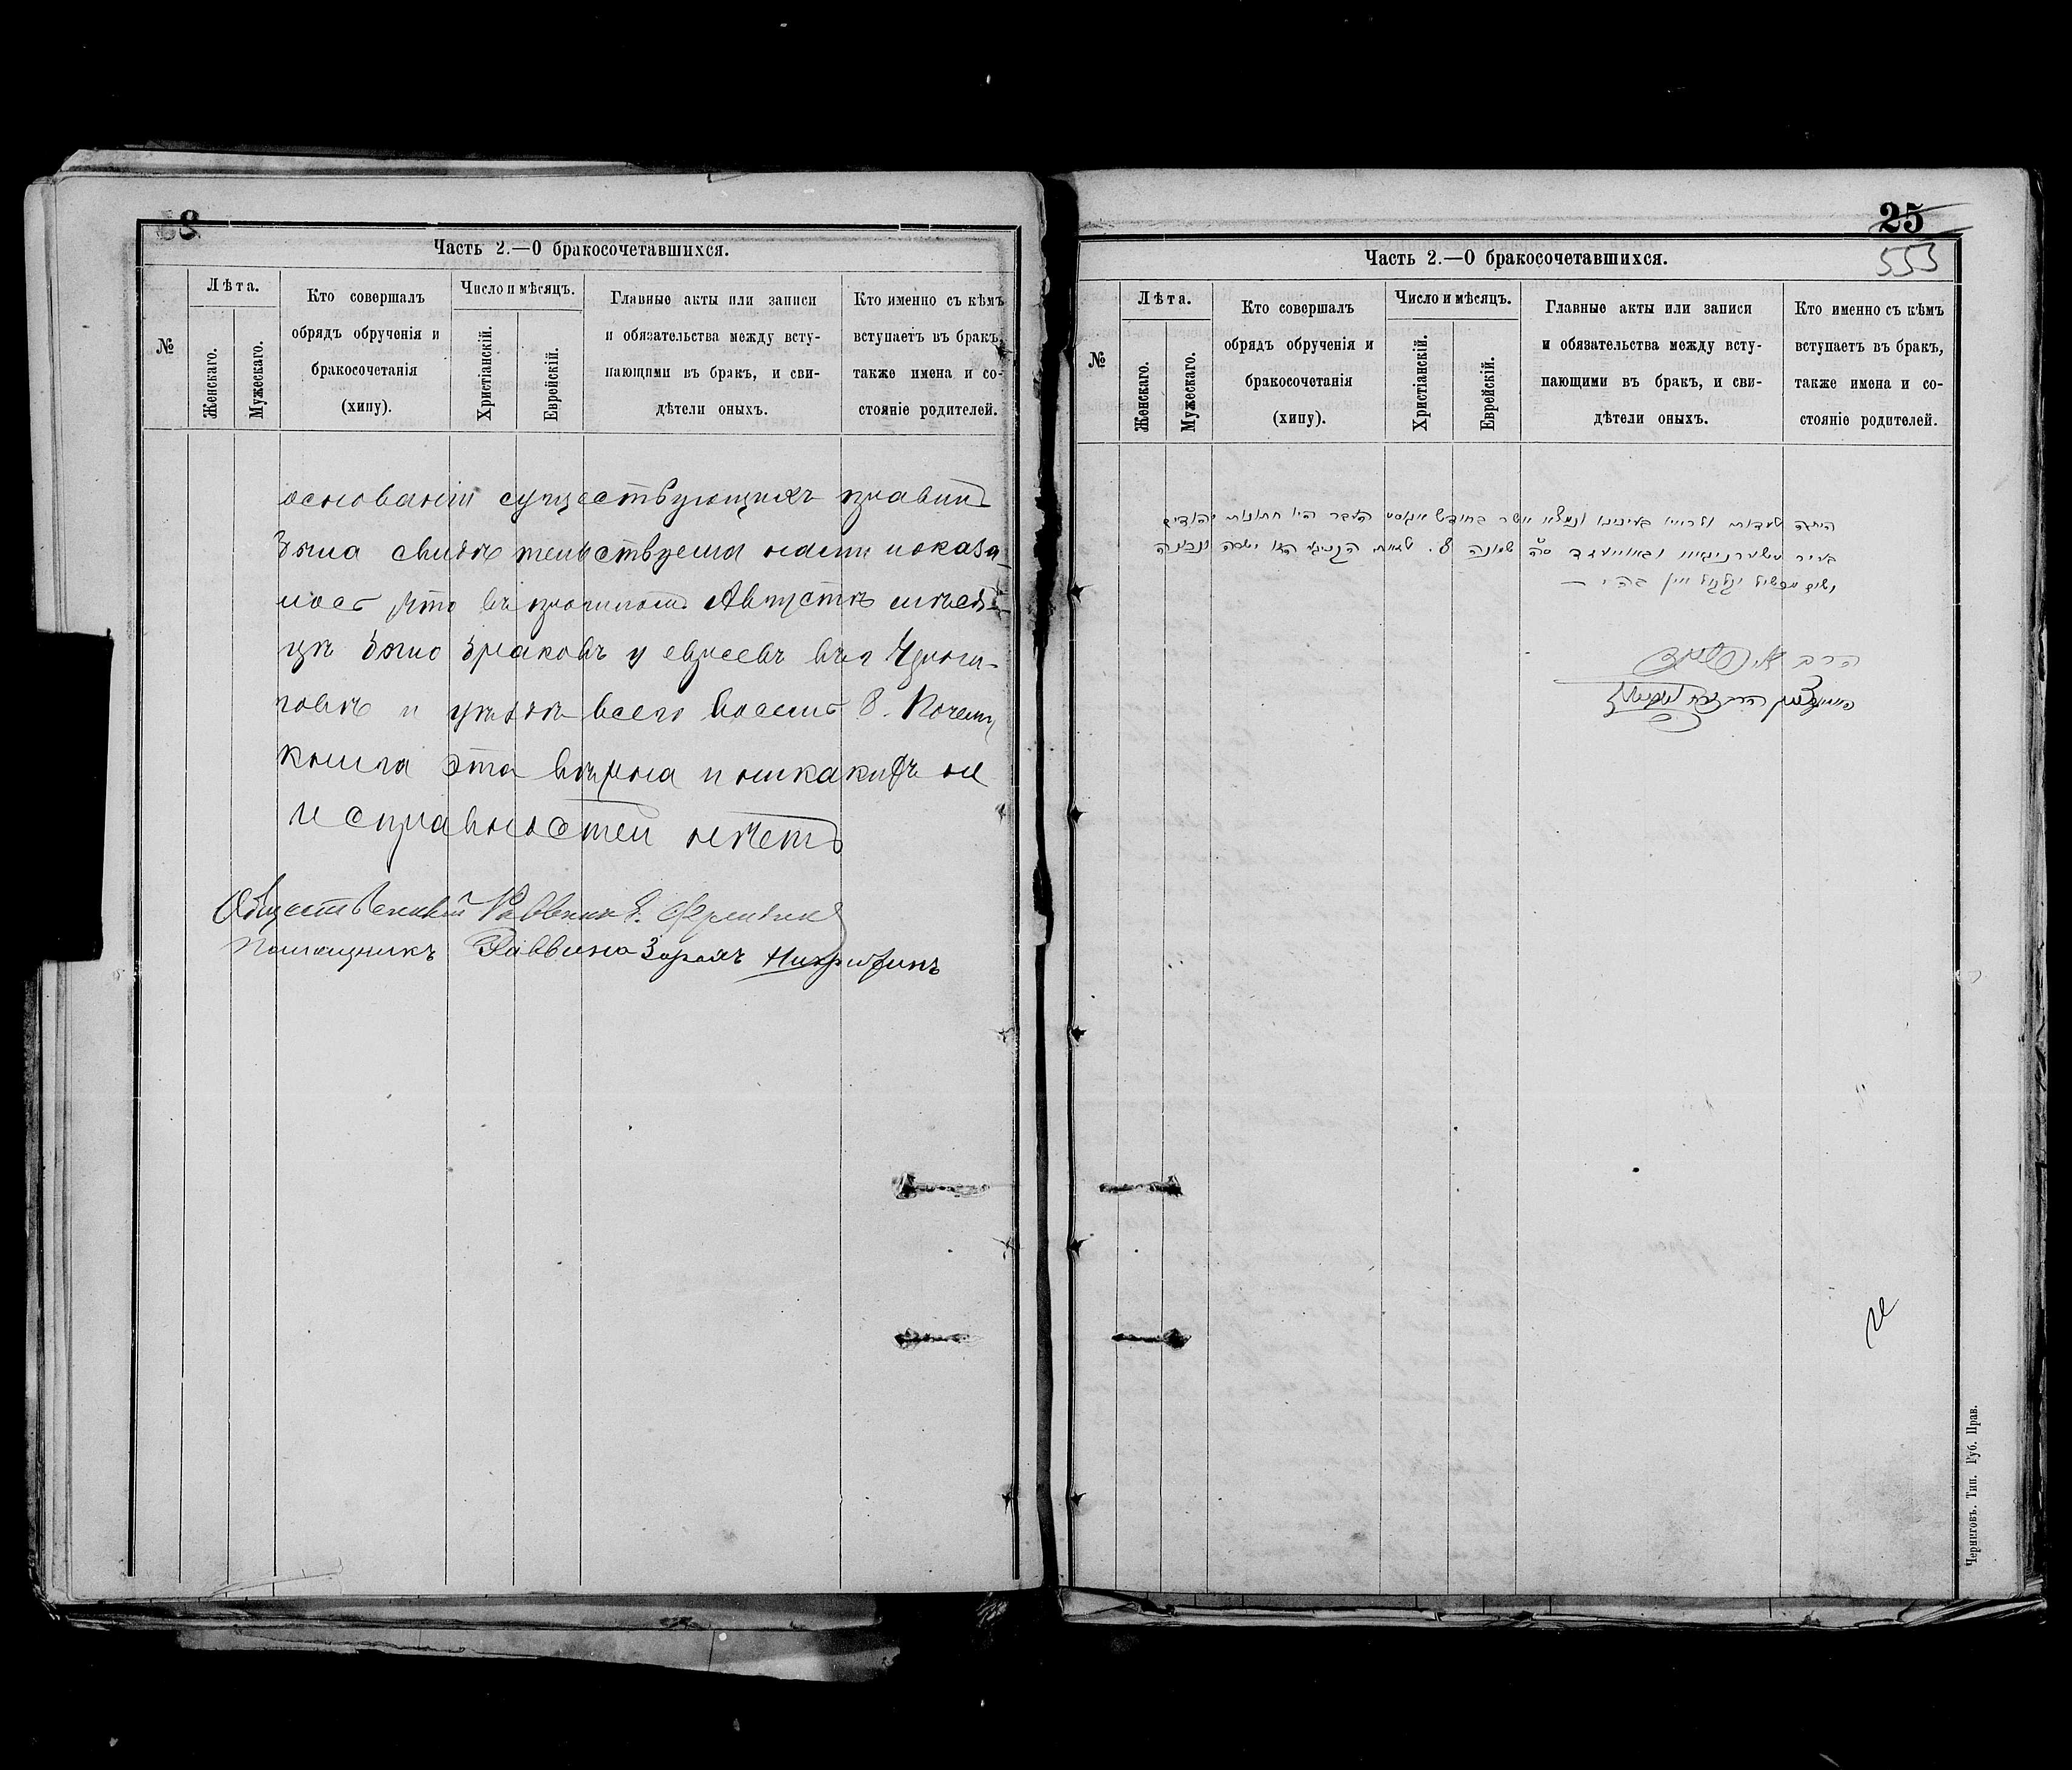 Часть 2.—О бракосочетавшихся.
№
Лѣта.
Женскаго.
Мужескаго.
Кто совершалъ
обрядъ обрученія и
бракосочетанія
(хипу).
Число и мѣсяцъ.
Христіанскій.
Еврейскій.
Главные акты или записи
и обязательства между всту-
пающими въ бракъ, и сви-
дѣтели оныхъ.
Кто именно съ кѣмъ
вступаетъ въ бракъ,
также имена и со-
стояніе родителей.
основаніи существующихъ правилъ
была свидѣтельствуема нами показа-
лось что въ прошломъ Августѣ мѣся-
цѣ было браковъ у евреевъ въ г Черни-
говѣ и уѣздѣ всего восемь 8. Почему
книга эта вѣрна и никакихъ не
исправностей нѣтъ
Общественный Раввинъ
Помощникъ Раввина Зорахъ
25
553
Часть 2.—О бракосочетавшихся.
№
Лѣта.
Женскаго.
Мужескаго.
Кто совершалъ
обрядъ обрученія и
бракосочетанія
(хипу).
Число и мѣсяцъ.
Христіанскій.
Еврейскій.
Главные акты или записи
и обязательства между всту-
пающими въ бракъ, и сви-
дѣтели оныхъ.
Кто именно съ кѣмъ
вступаетъ въ бракъ,
также имена и со-
стояніе родителей.
בחודש אויגוסט העבר היו חתונות יהודים
שמונה 8.
הרב
Черниговъ. Тип. Губ. Прав.